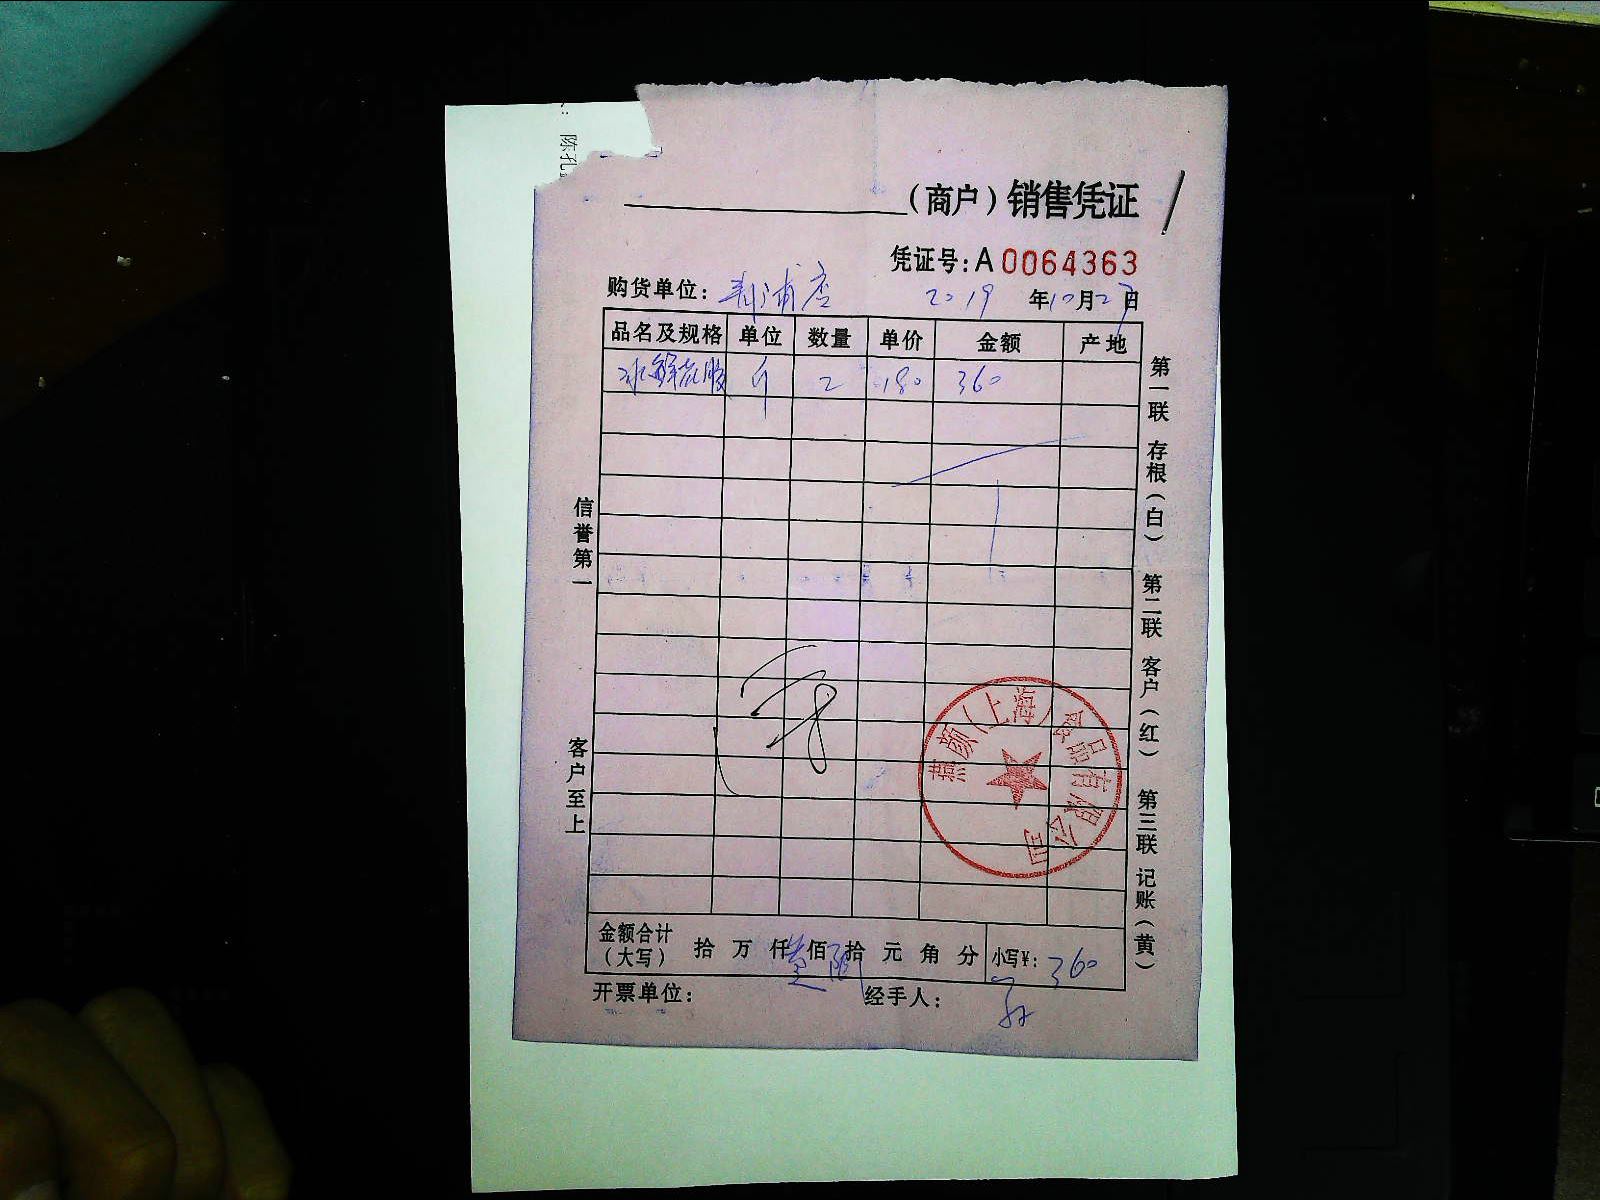 陈孔
（商户）销售凭证
凭证号：A 0064363
购货单位：青浦店 2019年10月27日
品名及规格 单位 数量 单价 金额 产地
冰鲜花胶 斤 2 180 360
信誉第一
客户至上
第一联 存根（白） 第二联 客户（红） 第三联 记账（黄）
燕颜（上海）食品有限公司
金额合计（大写） 拾 万 仟 佰 拾 元 角 分 小写¥：360
开票单位： 经手人：